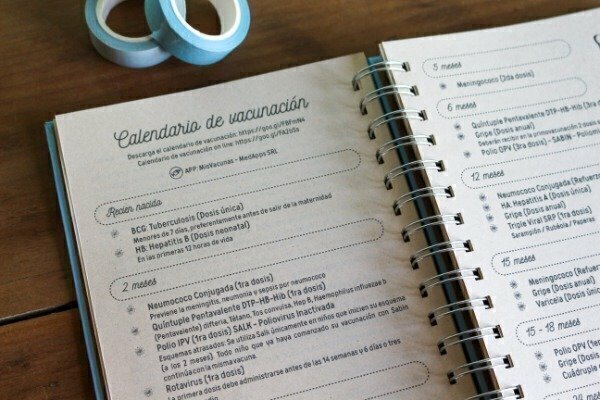 Calendario de vacunación
Descarga el calendario de vacunación: https://goo.gl/FBFnN4
Calendario de vacunación on line: https://goo.gl/
APP: MisVacunas - MedApps SRL
Recién nacido
BCG Tuberculosis (Dosis única)
Menores de 7 días, preferentemente antes de salir de la maternidad
HB: Hepatitis B (Dosis neonatal)
En las primeras 12 horas de vida
2 meses
Neumococo Conjugada (1ra dosis)
Previene la meningitis, neumonía y sepsis por neumococo
Quíntuple Pentavalente DTP-HB-Hib (1ra dosis)
(Pentavalente) difteria, Tétano, Tos convulsa, Hep B, Haemophilus influenzae b
Polio IPV (1ra dosis) SALK - Poliovirus Inactivada
Esquemas atrasados: Se utiliza Salk únicamente en niños que inicien su esquema
(a los 2 meses) Todo niño que ya haya comenzado su vacunación con Sabin
continúa con la misma vacuna.
Rotavirus (1ra dosis)
La primera dosis debe administrarse antes de las 14 semanas y 6 días o tres
5 meses
Meningococo (2da dosis)
6 meses
Quíntuple Pentavalente DTP-HB-Hib (3ra
Gripe (Dosis anual)
Deberán recibir en la primovacunación 2 dosis
Polio OPV (3ra dosis) - SABIN - Poliomi
12 meses
Neumococo Conjugada (Refuerzo
HA: Hepatitis A (Dosis única)
Gripe (Dosis anual)
Triple Viral SRP (1ra dosis)
Sarampión / Rubéola / Paperas
15 meses
Meningococo (Refuerzo
Gripe (Dosis anual)
Varicela (Dosis única
15 - 18 meses
Polio OPV (
Gripe (Dosis
Cuádruple